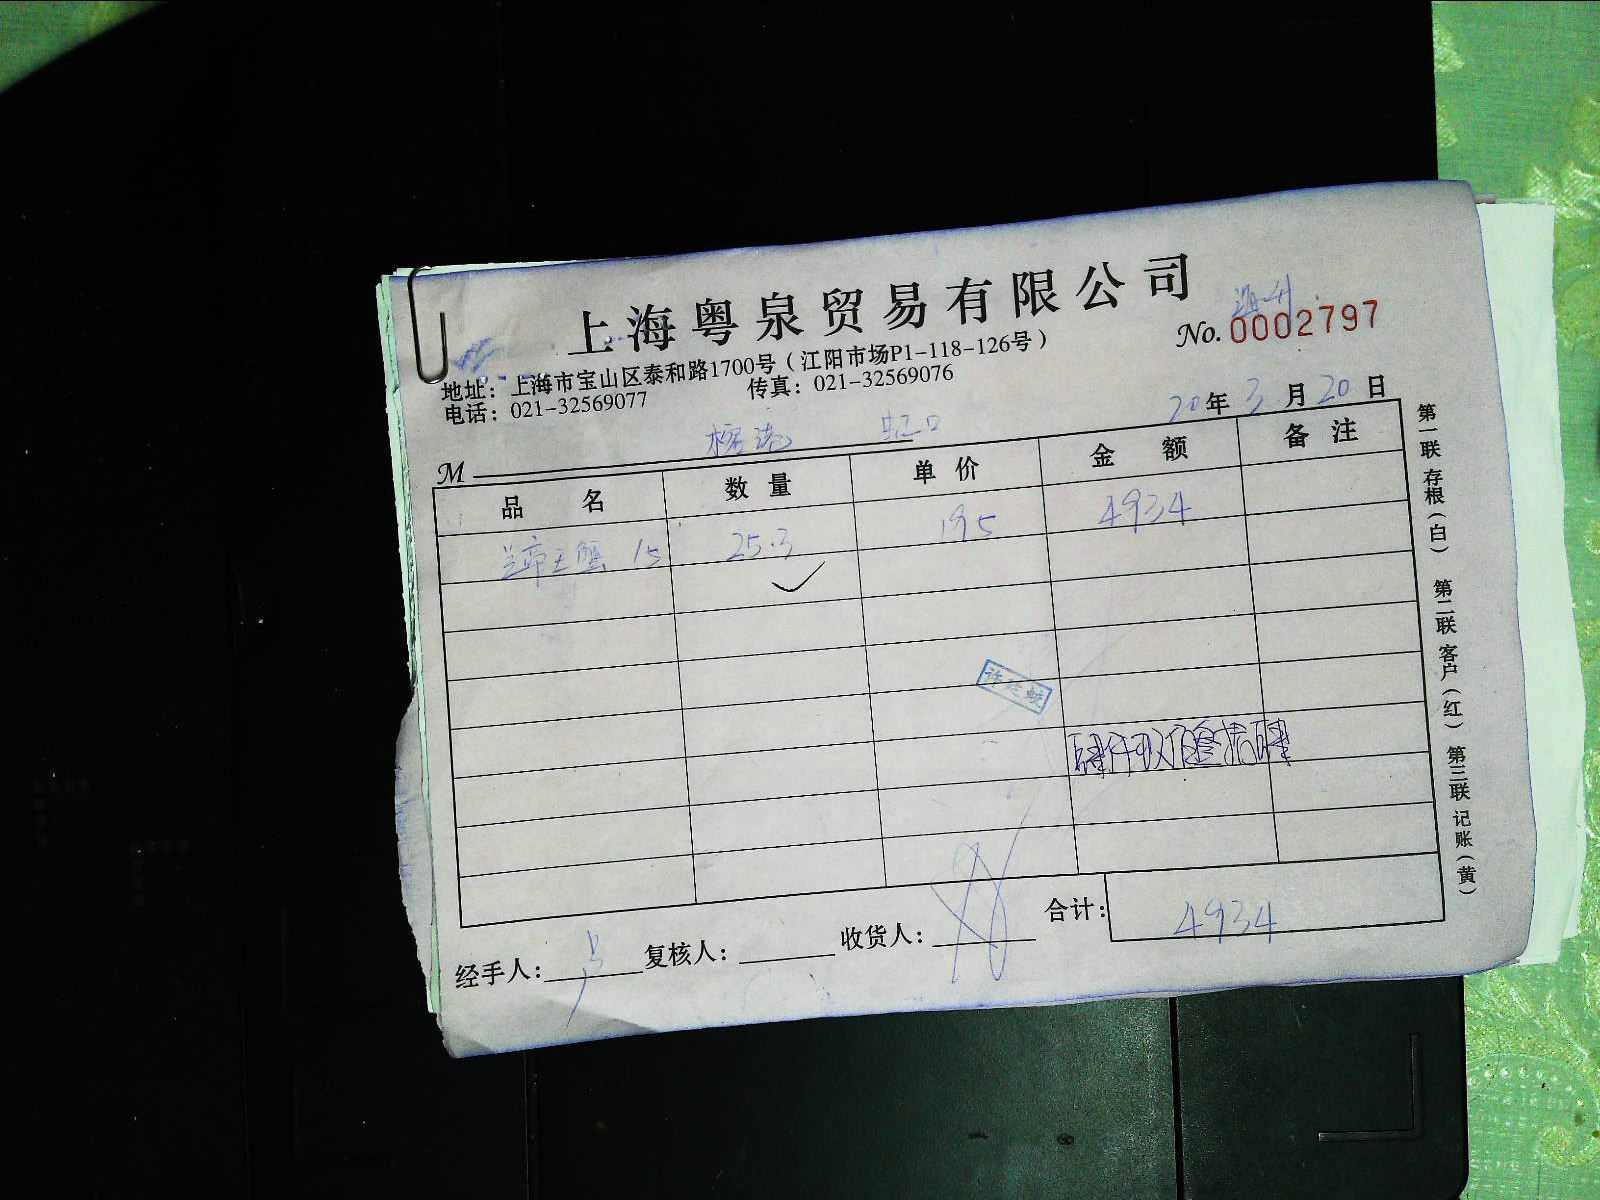 上海粤泉贸易有限公司
No. 0002797
地址：上海市宝山区泰和路1700号（江阳市场P1-118-126号）
电话：021-32569077 传真：021-32569076
20年3月20日
M 虹口
品 名 数 量 单 价 金 额 备 注
兰帝王蟹 15 25.3 195 4934
肆仟玖佰叁拾肆
合计：4934
经手人： 复核人： 收货人：
第一联 存根（白） 第二联 客户（红） 第三联 记账（黄）